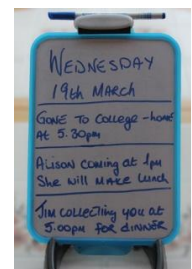 WEDNESDAY
19th MARCH
GONE TO COLLEGE - home
AT 5.30pm
ALISON COMING at 1pm
SHE WILL MAKE LUNCH
JIM COLLECTING YOU at
5.00pm FOR DINNER